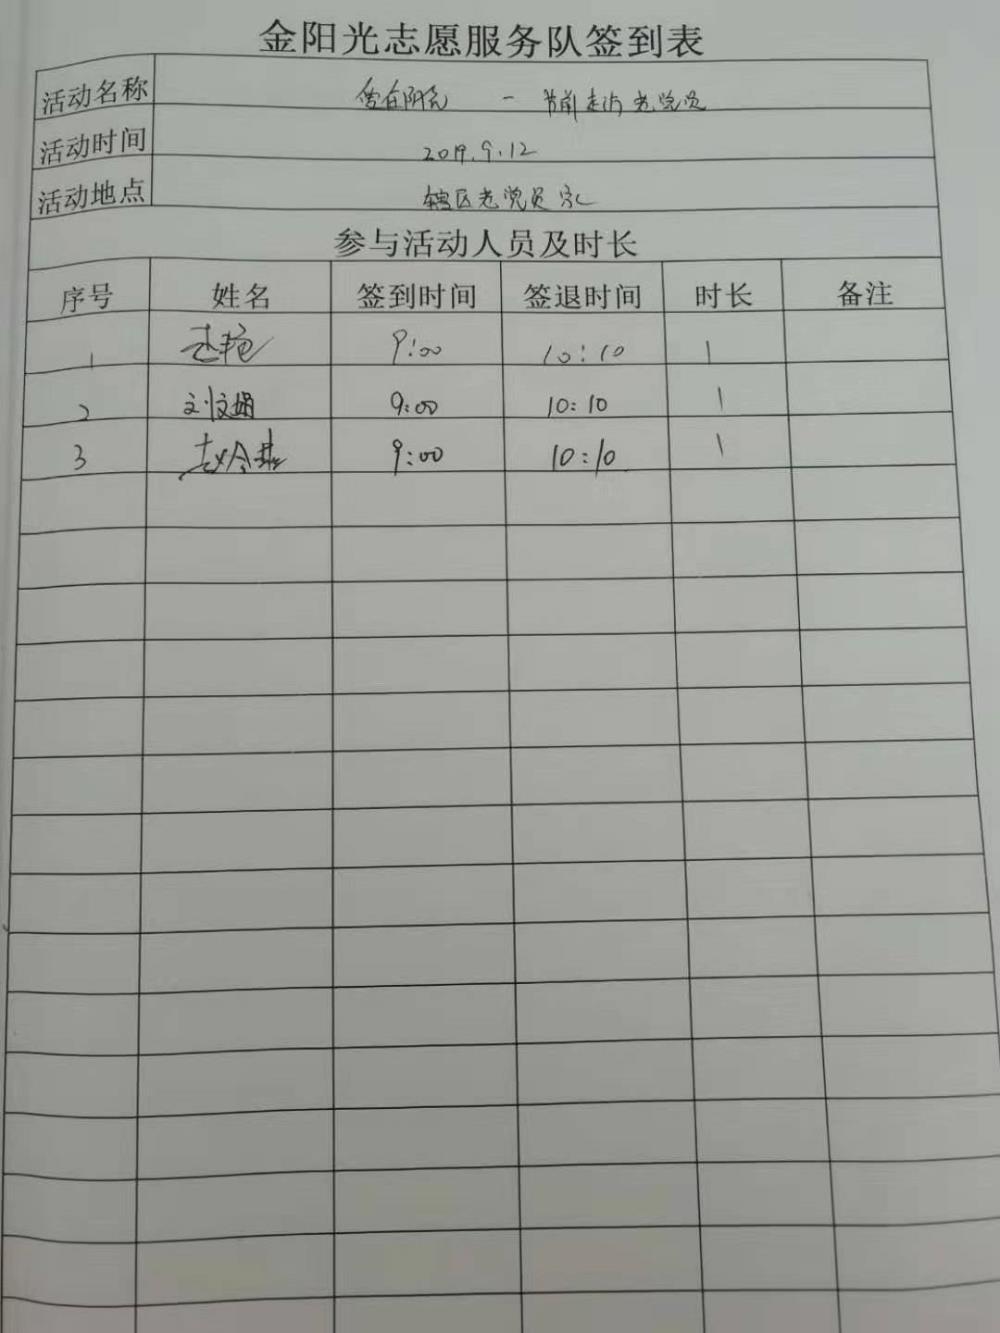 金阳光志愿服务队签到表
活动名称 爱在阳光 - 节前走访老党员
活动时间 2019.9.12
活动地点 辖区老党员家
参与活动人员及时长
序号 姓名 签到时间 签退时间 时长 备注
1 9:00 10:10 1
2 刘文娟 9:00 10:10 1
3 赵令 9:00 10:10 1